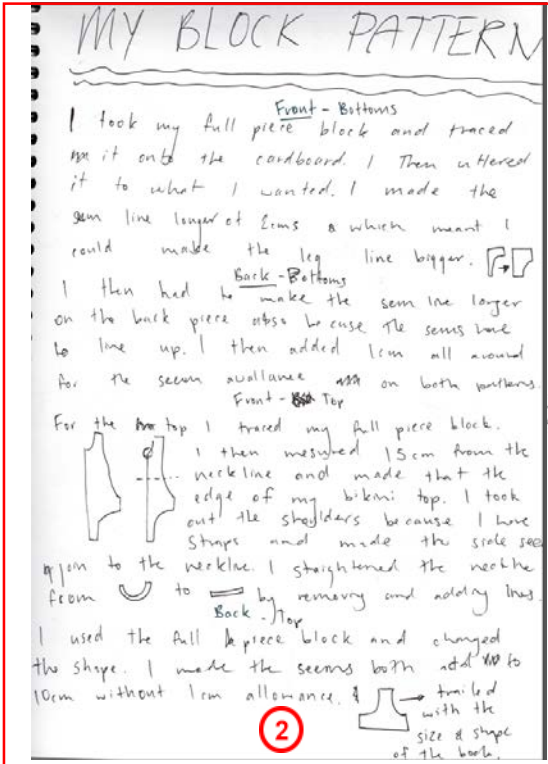 MY BLOCK PATTERN
Front - Bottoms
I took my full piece block and traced
it onto the cardboard. I Then uttered
it to what I wanted. I made the
sem line longer of 2cms & which meant I
could make the leg line bigger.
Back - Bottoms
I then had to make the sem line larger
on the back piece also because The sems have
to line up. I then added 1cm all around
for the seem avallance on both patterns.
Front - Top
For the top I traced my full piece block.
I then mesured 15cm from the
neckline and made that the
edge of my bikini top. I took
out the shoulders because I have
Straps and made the side seem
join to the neckline. I staightened the neckline
from to by removing and adding lines.
Back - Top
I used the full piece block and changed
the shape. I made the seems both to
10cm without 1cm allowance.
trailed
with the
size & shape
of the back.
2